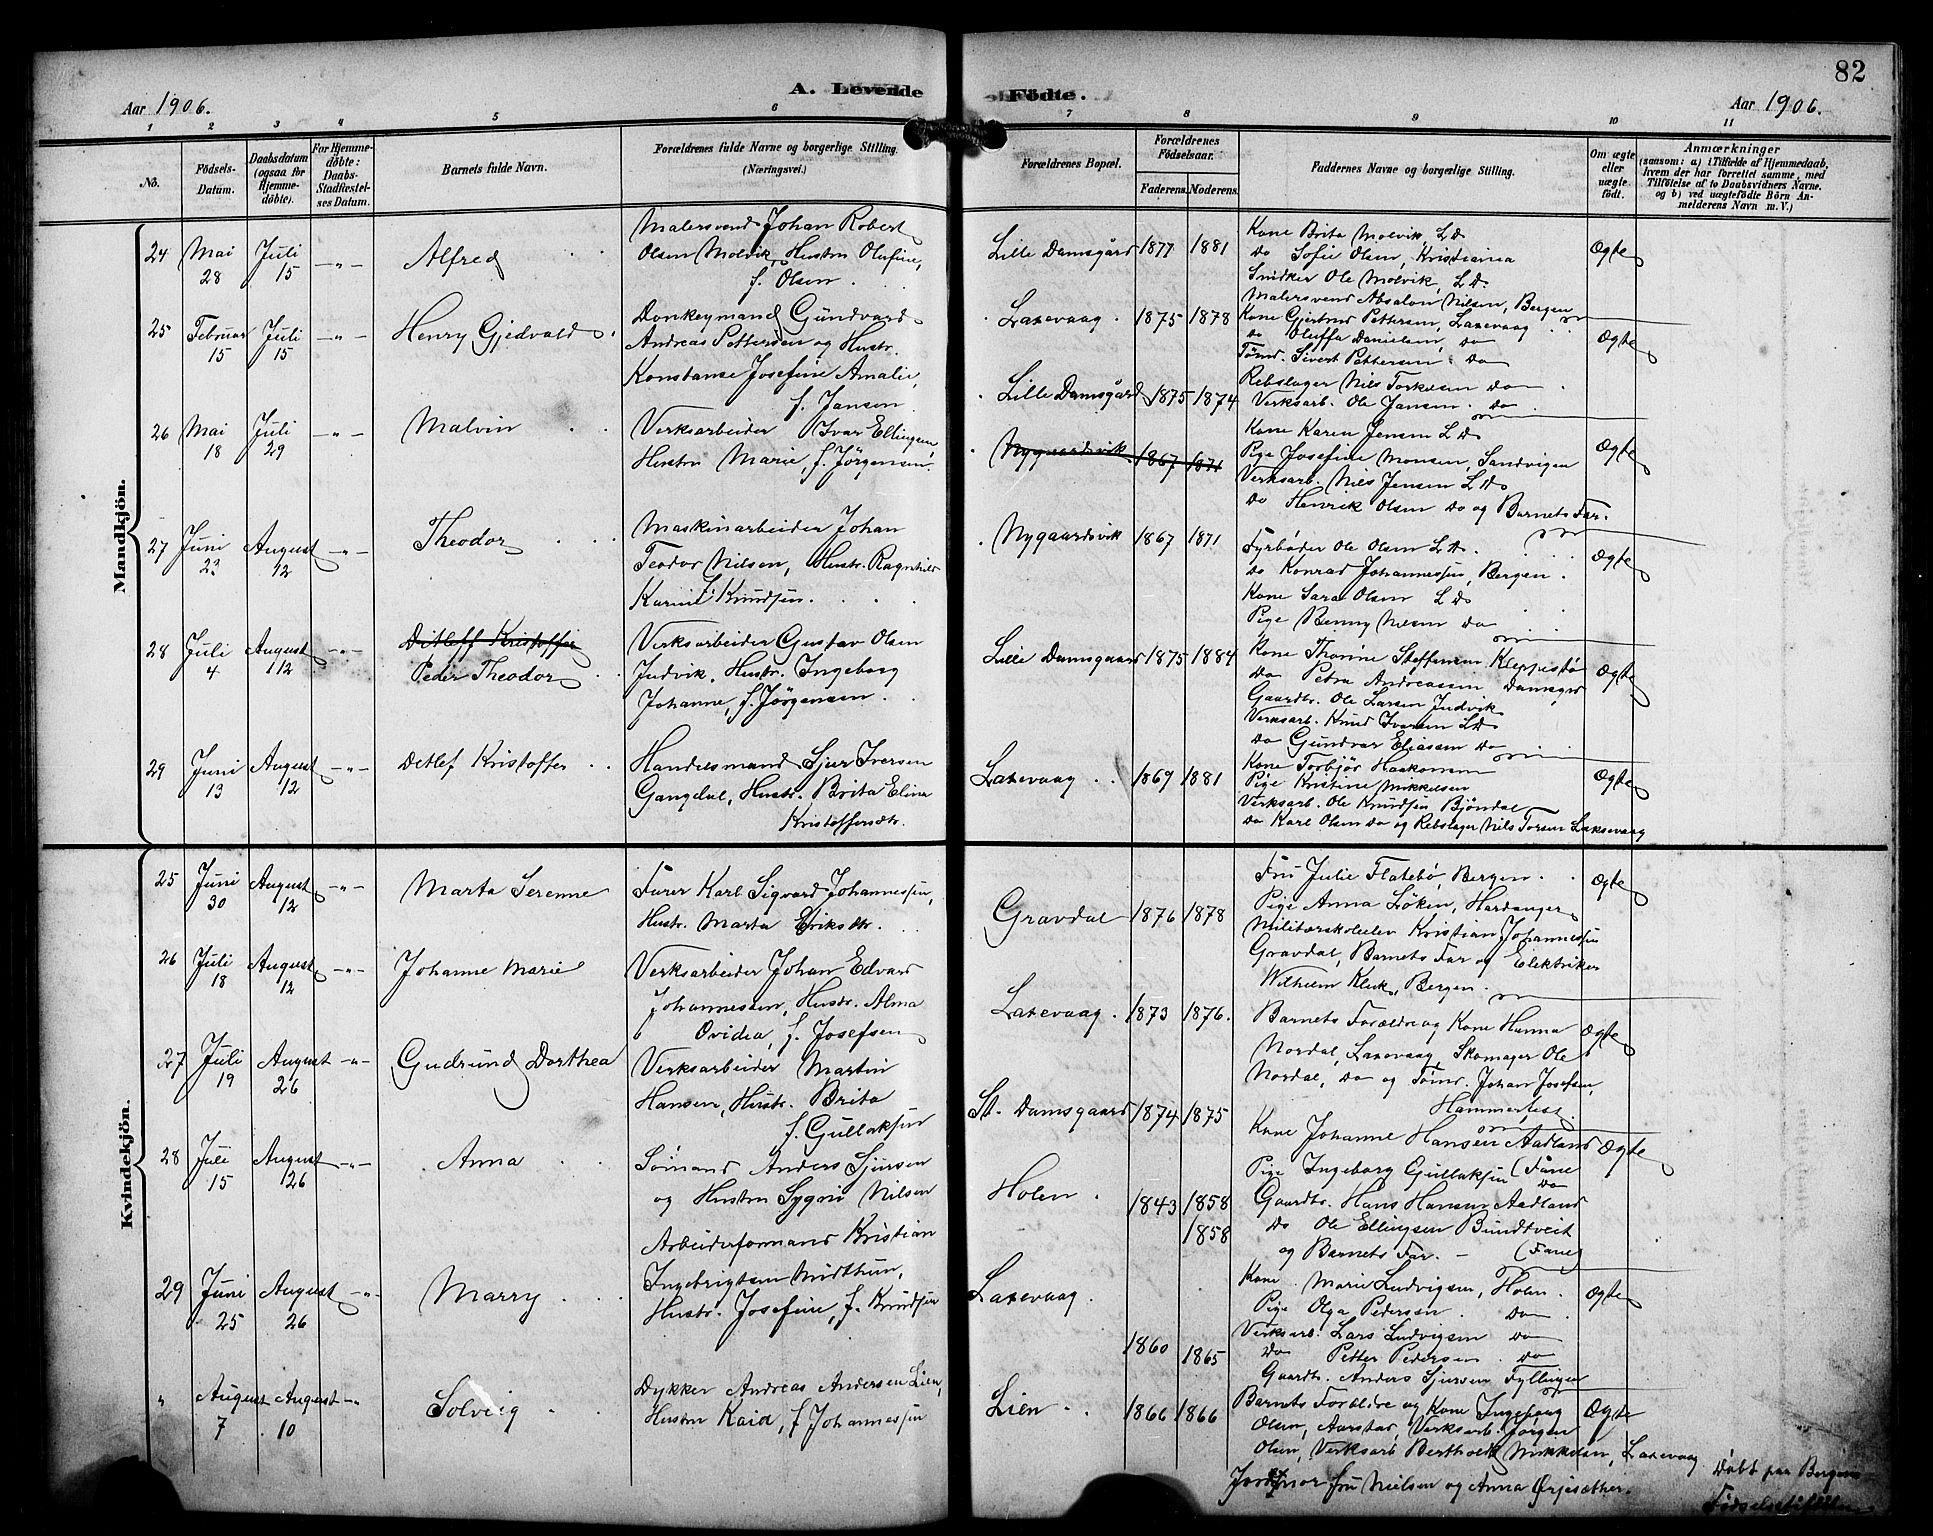 82
A. Levende Födte.
Aar 1906.
Aar 1906.
1 2 3 4 5 6 7 8 9 10 11
No.
Födsels-Datum.
Daabsdatum (ogsaa for Hjemmedöbte).
For Hjemmedöbte: Daabs-Stadfæstelses Datum.
Barnets fulde Navn.
Forældrenes fulde Navne og borgerlige Stilling. (Næringsvei.)
Forældrenes Bopæl.
Forældrenes Födselsaar.
Faderens. Moderens.
Faddernes Navne og borgerlige Stilling.
Om ægte eller uægte födt.
Anmærkninger
(saasom: a) i Tilfælde af Hjemmedaab, hvem der har forrettet samme, med Tilföielse af to Daabsvidners Navne, og b) ved uægtefödte Börn Anmelderens Navn m. V.)
Mandkjön.
24 Mai 28 Juli 15 -"- Alfred
Malersvend Johan Robert
Olsen Molvik, Hustru Olufine,
f. Olsen.
Lille Damsgård 1877 1881
Kone Brita Molvik L D
Do Sofie Olsen, Kristiania
Snidker Ole Molvik, L D.
Malersvend Absalon Nilsen, Bergen
Ægte
25 Februar 15 Juli 15 -"- Henry Gjedvald
Donkeymand Gündvard
Andreas Pettersen og Hustr.
Konstanse Josefine Amalie,
f. Jansen
Laxevaag. 1875 1878
Kone Gjertrud Pettersen, Laxevaag
do Oluffa Danielsen, do
Tømd. Sivert Pettersen. do
Rebslager Nils Torkelsen do
Verksarb. Ole Jansen. do.
Ægte
26 Mai 18 Juli 29 -"- Malvin
Verksarbeider Ivar Ellingsen
Hustru Marie, f. Jørgensen.
Lille Damsgård 1875 1874
Nygaardsvik 1867 1871
Kone Karen Jensen L D
Pige Josefine Monsen, Sandvigen
Verksarb. Nils Jensen L D
do Henrik Olsen Do og Barnets Far.
Ægte
27 Juni 23 August 12 -"- Theodor
Maskinarbeider Johan
Teodor Nilsen, Hustr. Ragnhild
Karine Knudsen.
Nygaardsvik 1867 1871
Fyrbøder Ole Olsen L D.
do Konrad Johannessen, Bergen.
Kone Sara Olsen L D
Pige Benny Nilsen Do
Ægte
28 Juli 4 August 12 -"- Ditleff Kristoffer
Peder Theodor
Verksarbeider Gustav Olsen
Judvik, Hustr. Ingeborg
Johanne, f. Jørgensen.
Lille Damsgaard 1875 1884
Kone Thorine Steffensen Kleppestø
Do Petra Andreassen Damsgrd
Gaardbr. Ole Larsen Judvik
Verksarb. Knud Ivarsen L D
Do Gundvar Eliassen Do
Ægte
29 Juni 13 August 12 -"- Ditlef Kristoffer
Handelsmand Sjur Iversen
Gangdal, Hustr. Brita Elina
Kristoffersdtr.
Laxevaag 1869 1881
Kone Torbjør Haakonsen
Pige Kristine Mikkelsen
Verksarb. Ole Knudsen Bjøndal
Do Karl Olsen Do og Rebslager Nils Torsen Laksevaag
Ægte
Kvindekjön.
25 Juni 30 August 12 -"- Marta Serenne
Furer Karl Sigvard Johannessen,
Hustr. Marta Eriksdtr.
Gravdal 1876 1878
Fru Julie Flatebø Bergen
Pige Anna Løkin, Hardanger
Militærskoleelev Kristian Johannessen
Gravdal, Barnets Far og Elektriker
Wilhelm Kluk, Bergen.
Ægte
26 Juli 18 August 12 -"- Johanne Marie
Verksarbeider Johan Edvard
Johannessen, Hustr. Alma
Ovidia, f. Josefsen
Laxevaag. 1873 1876.
Barnets Forældre og Kone Hanna
Nordal, Laxevaag, Skomager Ole
Nordal, Do og Tømr. Johan Josefsen,
Hammerfest.
Ægte
27 Juli 19 August 26 -"- Gudrund Dorthea
Verksarbeider Martin
Hansen, Hustr. Brita
f. Gullaksen
St. Damsgaard 1874 1875
Kone Johanne Hansen Aadland
Pige Ingeborg Gullaksen (Fane
Do
Gaardbr. Hans Hansen Aadland
Do Ole Ellingsen Bundtveit
og Barnets Far. - (Fane)
Ægte
28 Juli 15 August 26 -"- Anna
Sømand Anders Sjursen
og Hustru Sygni Nilsen
Holen. 1843 1858
1858
Kone Marie Ludvigsen, Holen.
Pige Olga Pedersen. Do
Verksarb. Lars Ludvigsen do
Do Petter Pedersen. do
Gaardb. Anders Sjursen Fyllingen
Ægte
29 Juni 25 August 26 -"- Marry
Arbeiderformand Kristian
Ingebrigtsen Midthun,
Hustr. Josefine, f. Knudsen
Laxevaag. 1860 1865
" August 7 August 10 -"- Solveig
Dykker Andreas Andersen Lien,
Hustru Kaia, f Johannessen
Lien 1866 1866
Barnets Forældre og Kone Ingeborg
Olsen, Aarstad, Verksarb. Jørgen
Olsen, Verksarb Berthold Mikkelsen, Laxevaag
Jordmor Fru Nielsen og Anna Ørjesæther.
Ægte
Døbt paa Bergens
Fødselsstiftelse